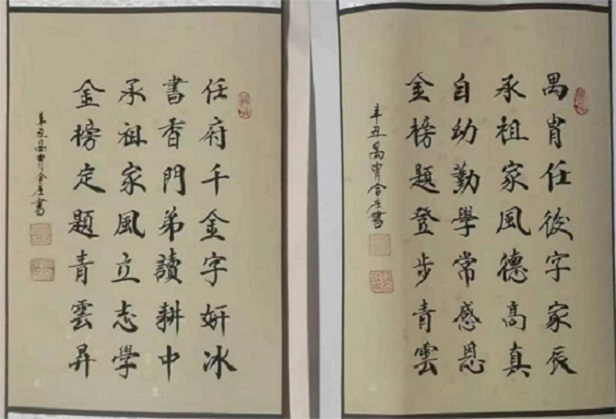 任府千金字妍冰
書香門弟讀耕中
承祖家風立志學
金榜定題青雲昇
辛丑禺胄書
禺胄任後字家辰
承祖家風德高真
自幼勤學常感恩
金榜題登步青雲
辛丑禺胄書